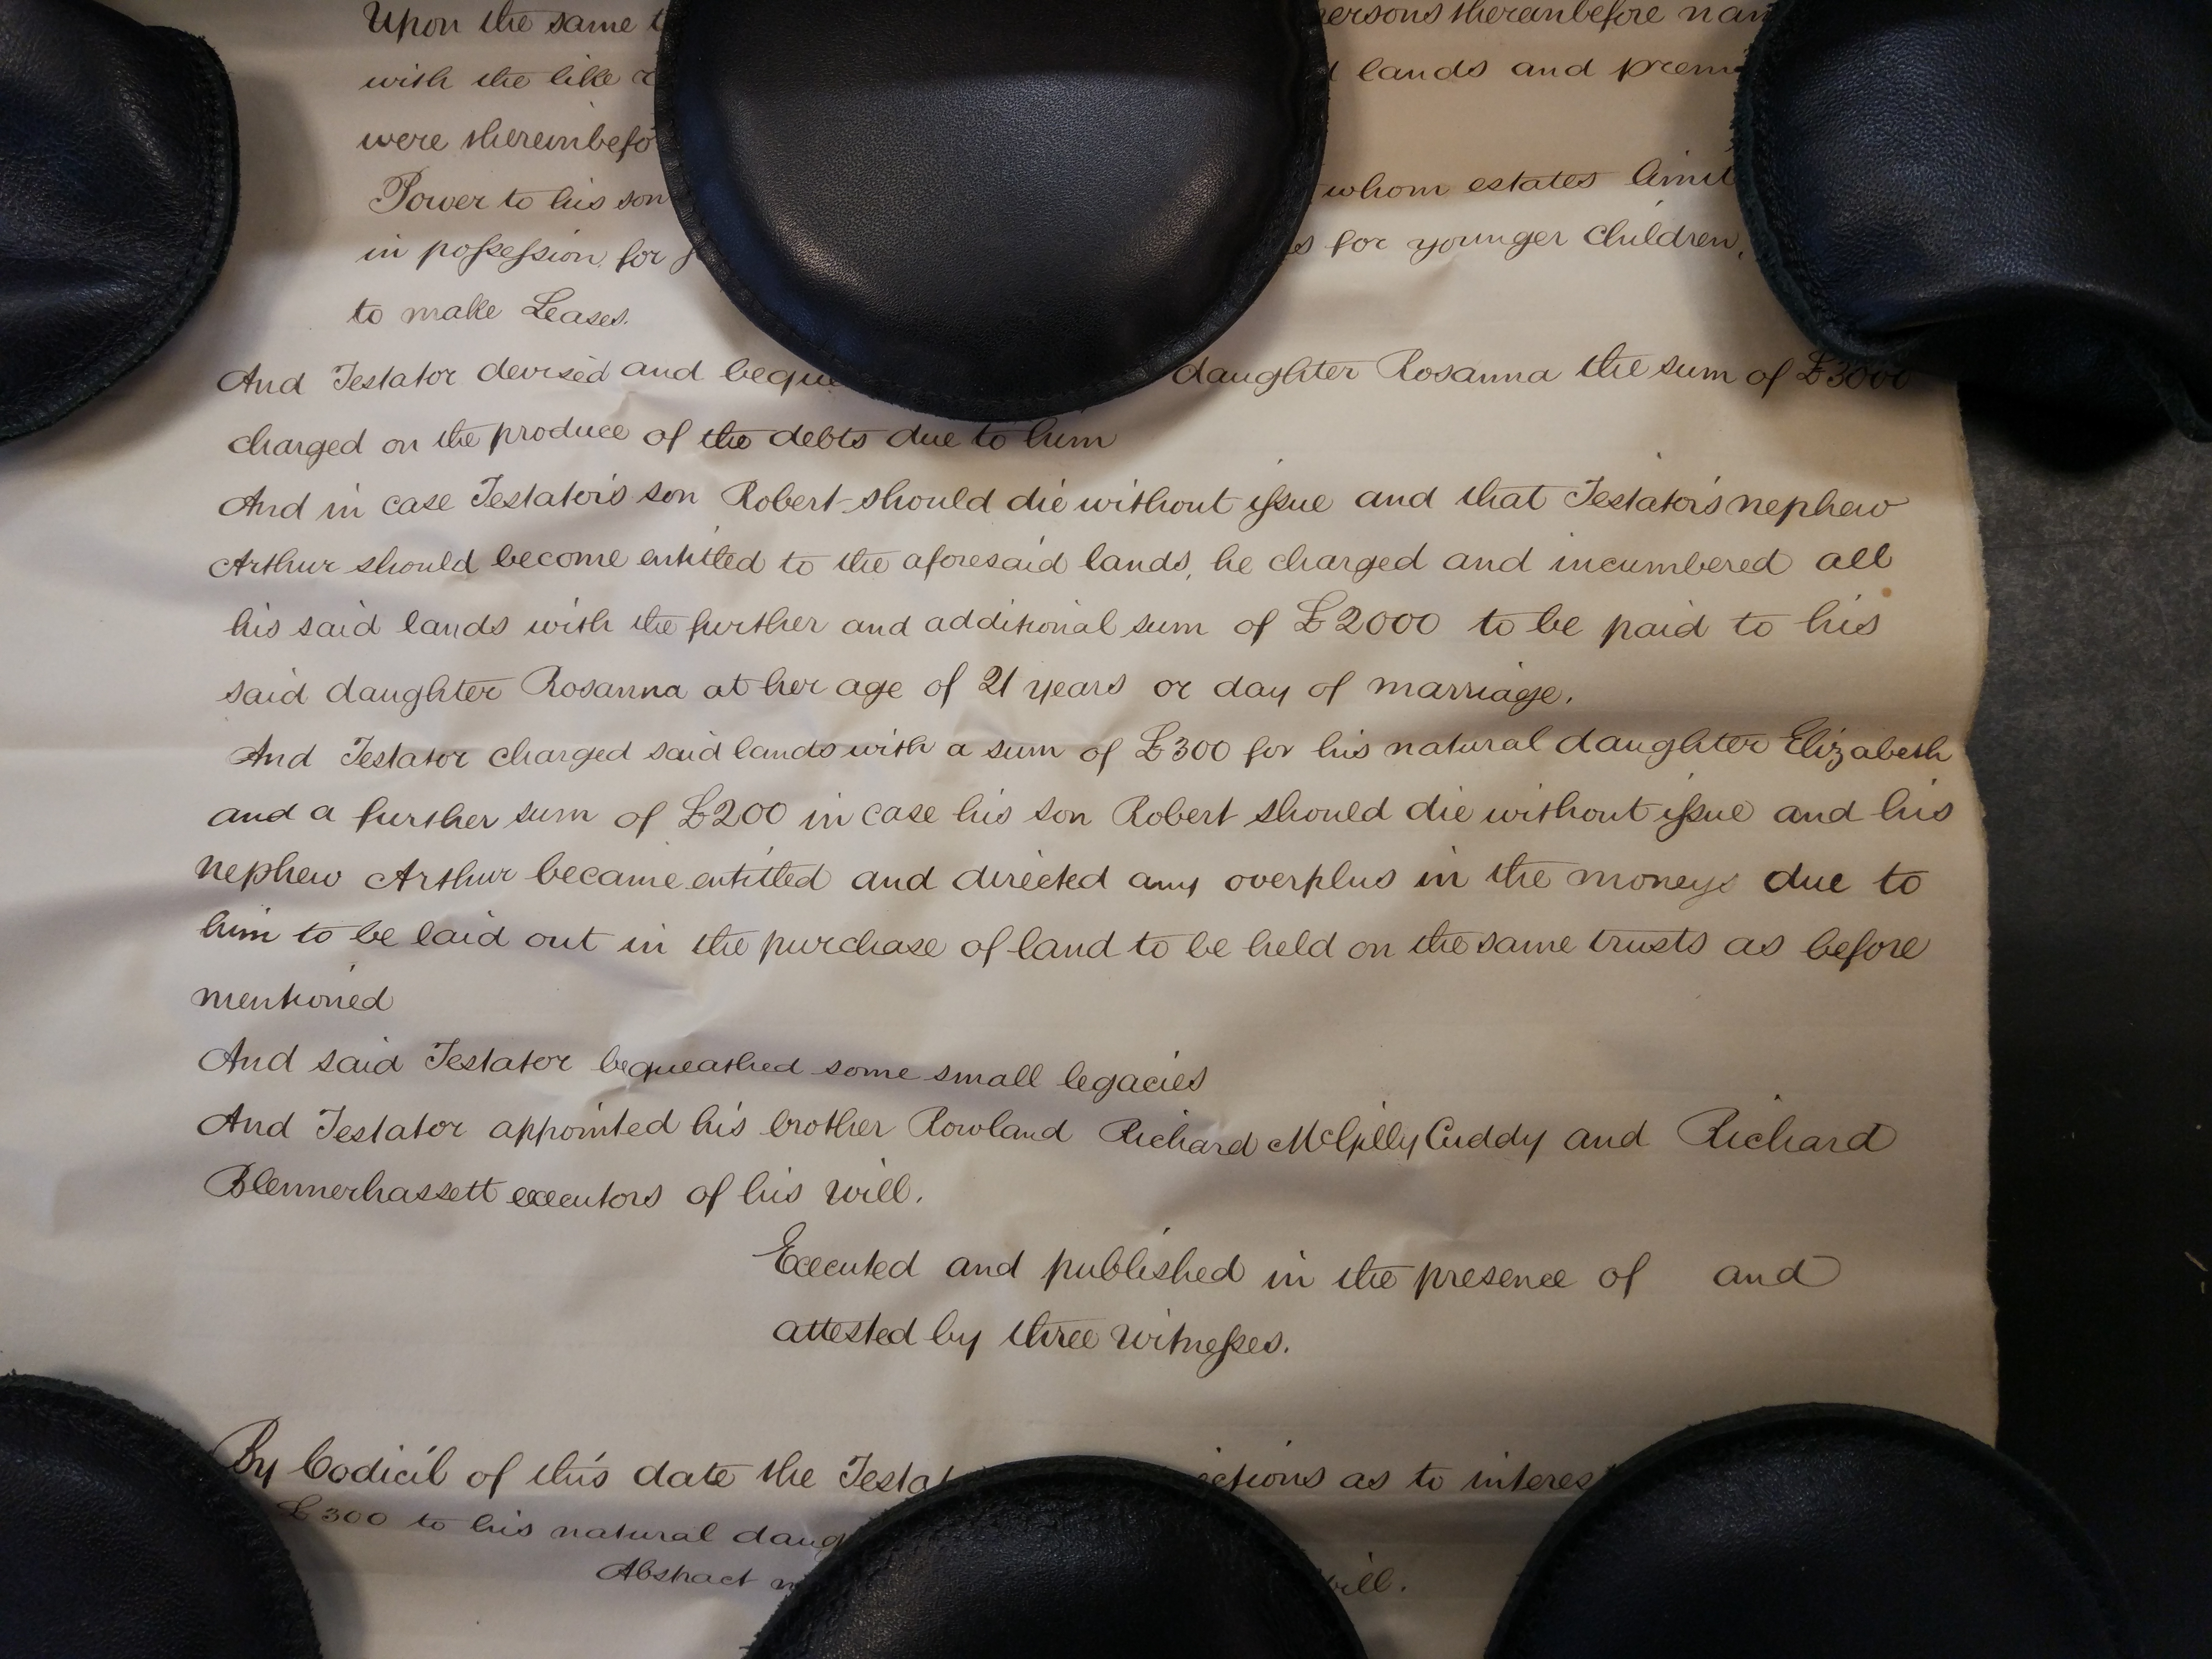 Upon the same persons thereinbefore
with the like lands and
were
Power to his son whom estates
in possession for for younger Children,
to make Leases.
And Testator devised and daughter Rosanna the sum of £3000
charged on the produce of the debts due to him
And in case Testator's son Robert should die without issue and that Testator's nephew
Arthur should become entitled to the aforesaid lands, he charged and incumbered all
his said lands with the further and additional sum of £2000 to be paid to his
said daughter Rosanna at her age of 21 years or day of marriage.
And Testator charged said lands with a sum of £300 for his natural daughter Elizabeth
and a further sum of £200 in case his son Robert should die without issue and his
nephew Arthur became entitled and directed any overplus in the moneys due to
him to be laid out in the purchase of land to be held on the same trusts as before
mentioned
And said Testator bequeathed some small legacies
And Testator appointed his brother Rowland Richard McGillyCuddy and Richard
Blennerhassett executors of his will.
Executed and published in the presence of and
attested by three witnesses.
By Codicil of this date the as to
£300 to his natural
Abstract